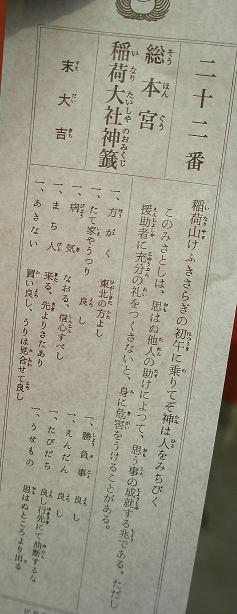 二十二番
総本宮
稲荷大社神籤
末大吉
稲荷山けふきさらぎの初午に乗りてぞ神は人をみちびく
このみさとしは、思はぬ他人の助けによって、思う事の成就する兆である。ただし
援助者に充分の礼をつくさないと、身に危害をうけることがある。
一、方がく 東北の方よし
一、たて家やうつり 良し
一、病気 なおる、信心すべし
一、まち人 来る、先よりさたあり
一、あきない 買い良し、うりは見合せて良し
一、勝負事 良し
一、えんだん 良し
一、たびだち 良し行先にて油断するな
一、うせもの 思はぬところより出る